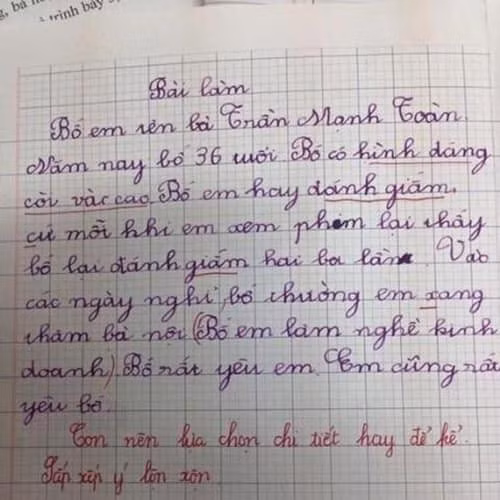 trình bày
Bài làm
Bố em tên là Trần Mạnh Toàn.
Năm nay bố 36 tuổi Bố có hình dáng
còi và cao. Bố em hay đánh giấm.
cứ mỗi khi em xem phim lại thấy
bố lại đánh giấm hai ba lần. Vào
các ngày nghỉ, bố thường em xang
thăm bà nội (Bố em làm nghề kinh
doanh). Bố rất yêu em. Em cũng rất
yêu bố.
Con nên lựa chọn chi tiết hay để kể.
Sắp xếp ý lộn xộn